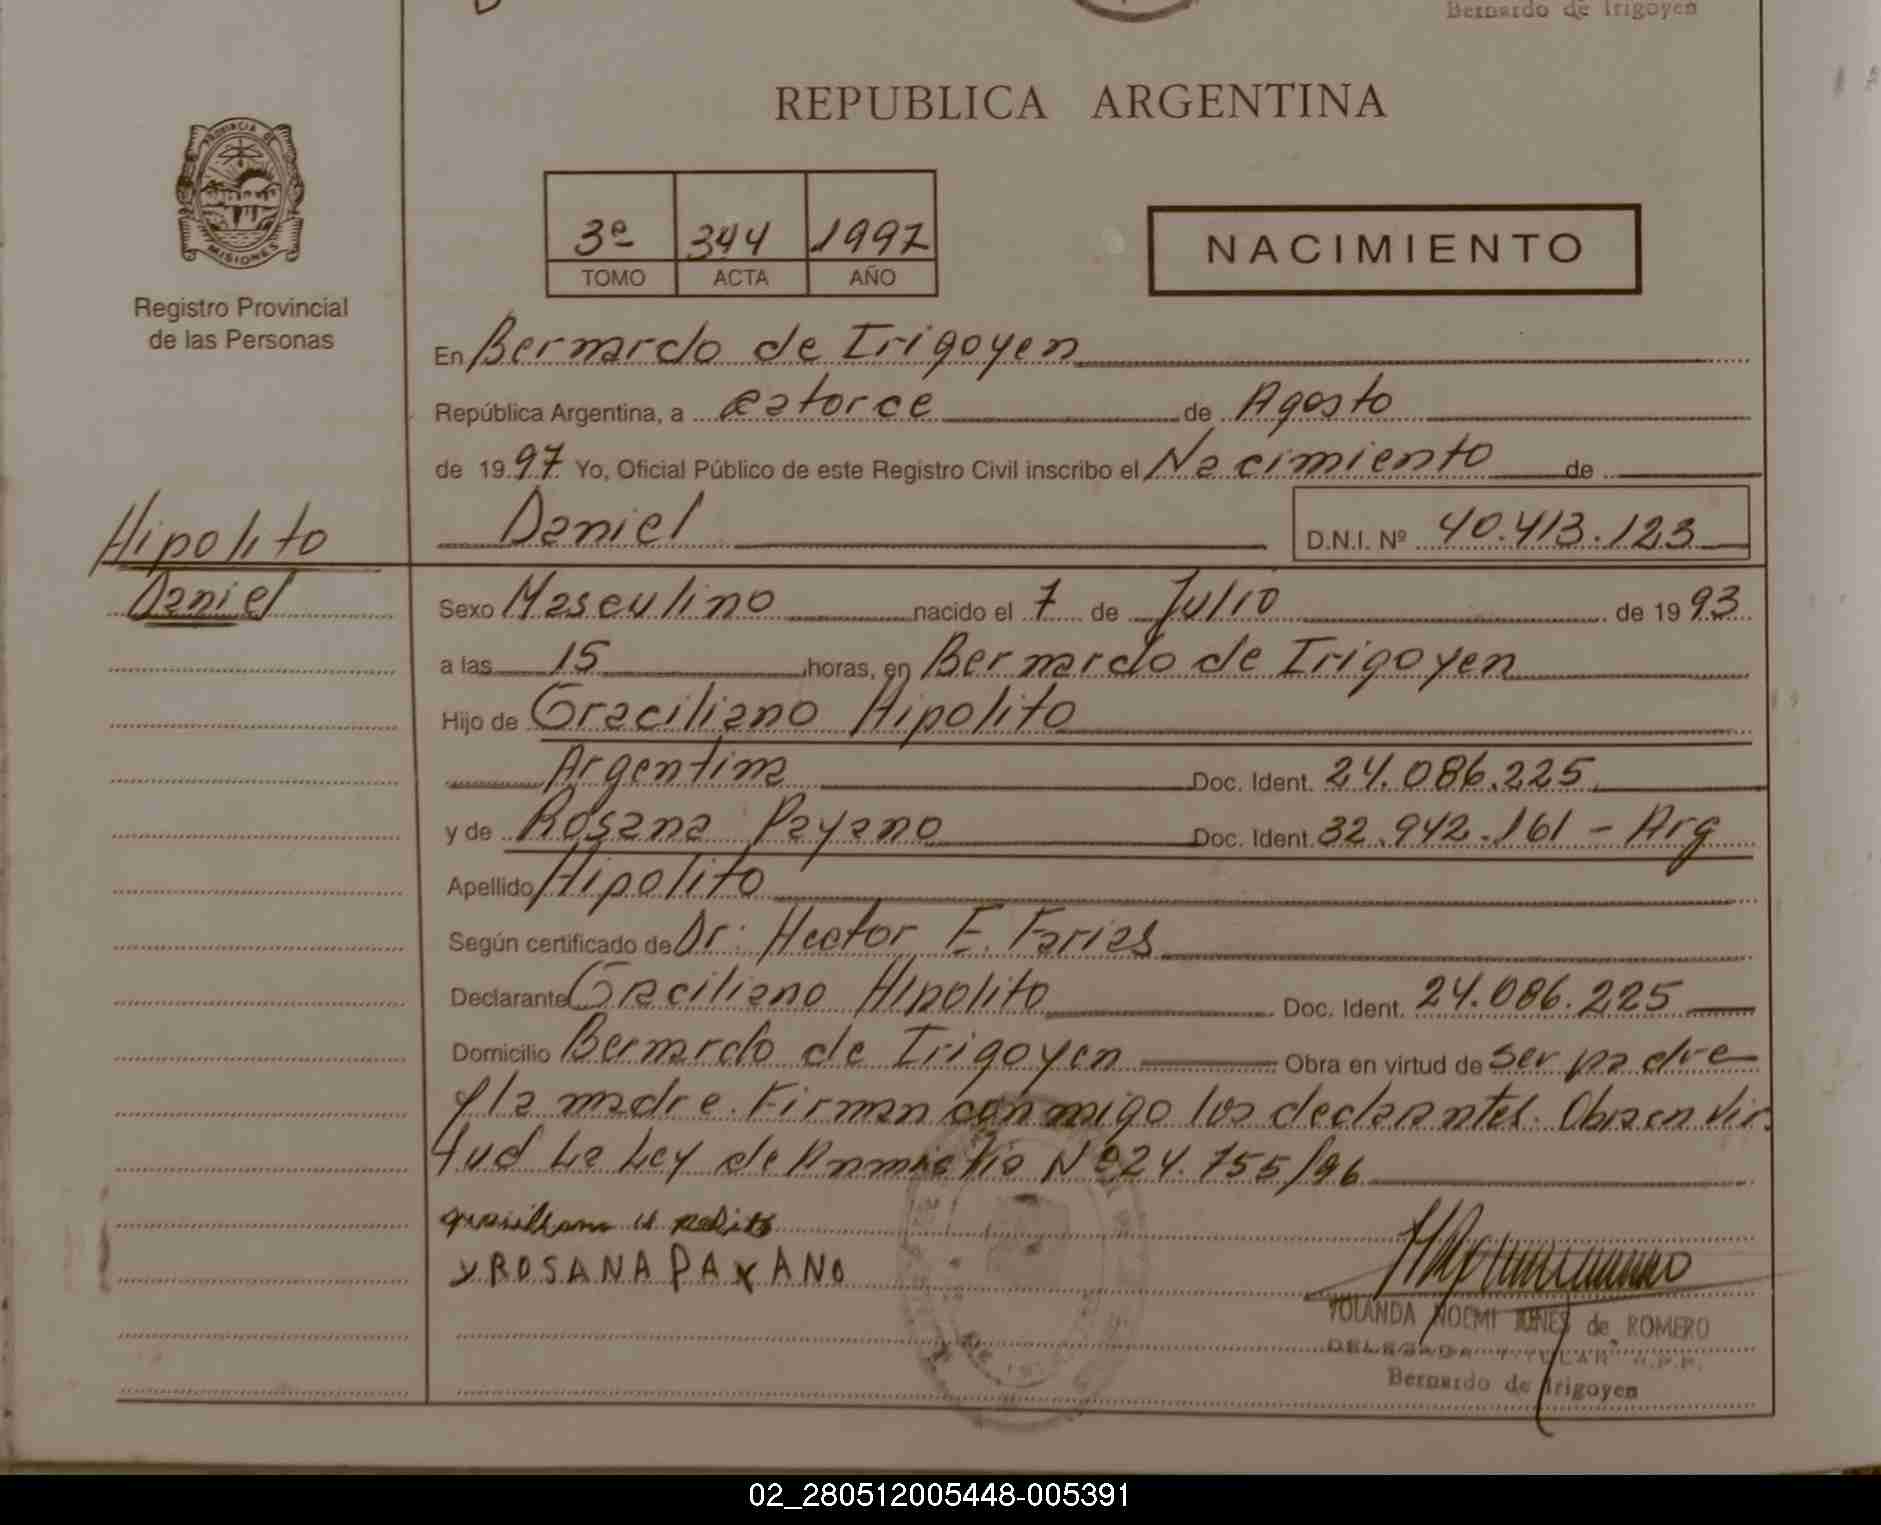 Bernardo de Irigoyen
REPUBLICA ARGENTINA
PROVINCIA DE
MISIONES
Registro Provincial
de las Personas
3º 344 1997
TOMO ACTA AÑO
NACIMIENTO
En Bernardo de Irigoyen
República Argentina, a catorce de Agosto
de 1997 Yo, Oficial Público de este Registro Civil inscribo el Nacimiento de
Daniel D.N.I. Nº 40.413.123
Hipolito
Daniel
Sexo Masculino nacido el 7 de Julio de 1993
a las 15 horas, en Bernardo de Irigoyen
Hijo de Graciliano Hipolito
Argentina Doc. Ident. 24.086.225
y de Rosana Payano Doc. Ident. 32.942.161 - Arg
Apellido Hipolito
Según certificado de Dr: Hector E. Farias
Declarante Graciliano Hipolito Doc. Ident. 24.086.225
Domicilio Bernardo de Irigoyen Obra en virtud de ser padre
y la madre. Firman conmigo los declarantes. Obra en vir
tud La Ley de Amnistia Nº 24.755/96
y ROSANA PAYANO
YOLANDA NOEMI de ROMERO
DELEGADA TITULAR R.P.P.
Bernardo de Irigoyen
02_280512005448-005391